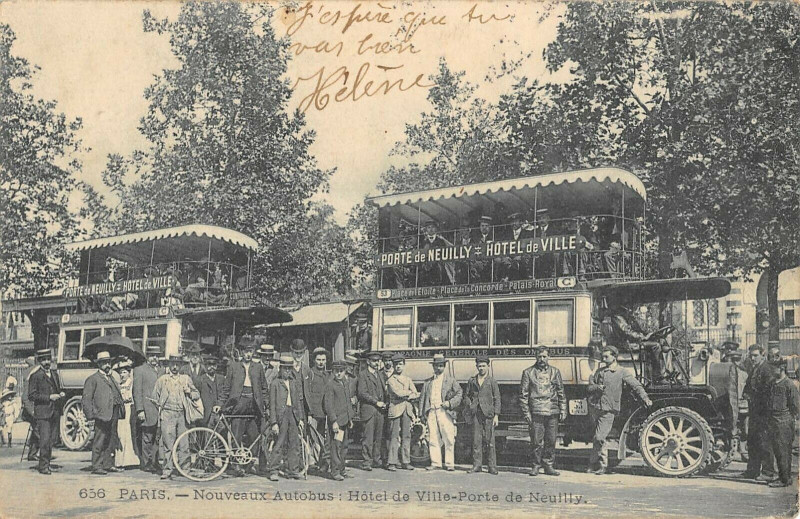 J'espère que tu
vas bien
Hélène
PORTE de NEUILLY = HÔTEL de VILLE
Place de l'Etoile - Place de la Concorde - Palais-Royal
C
COMPAGNIE GENERALE DES OMNIBUS
PORTE de NEUILLY = HÔTEL de VILLE
656 PARIS. — Nouveaux Autobus : Hôtel de Ville-Porte de Neuilly.